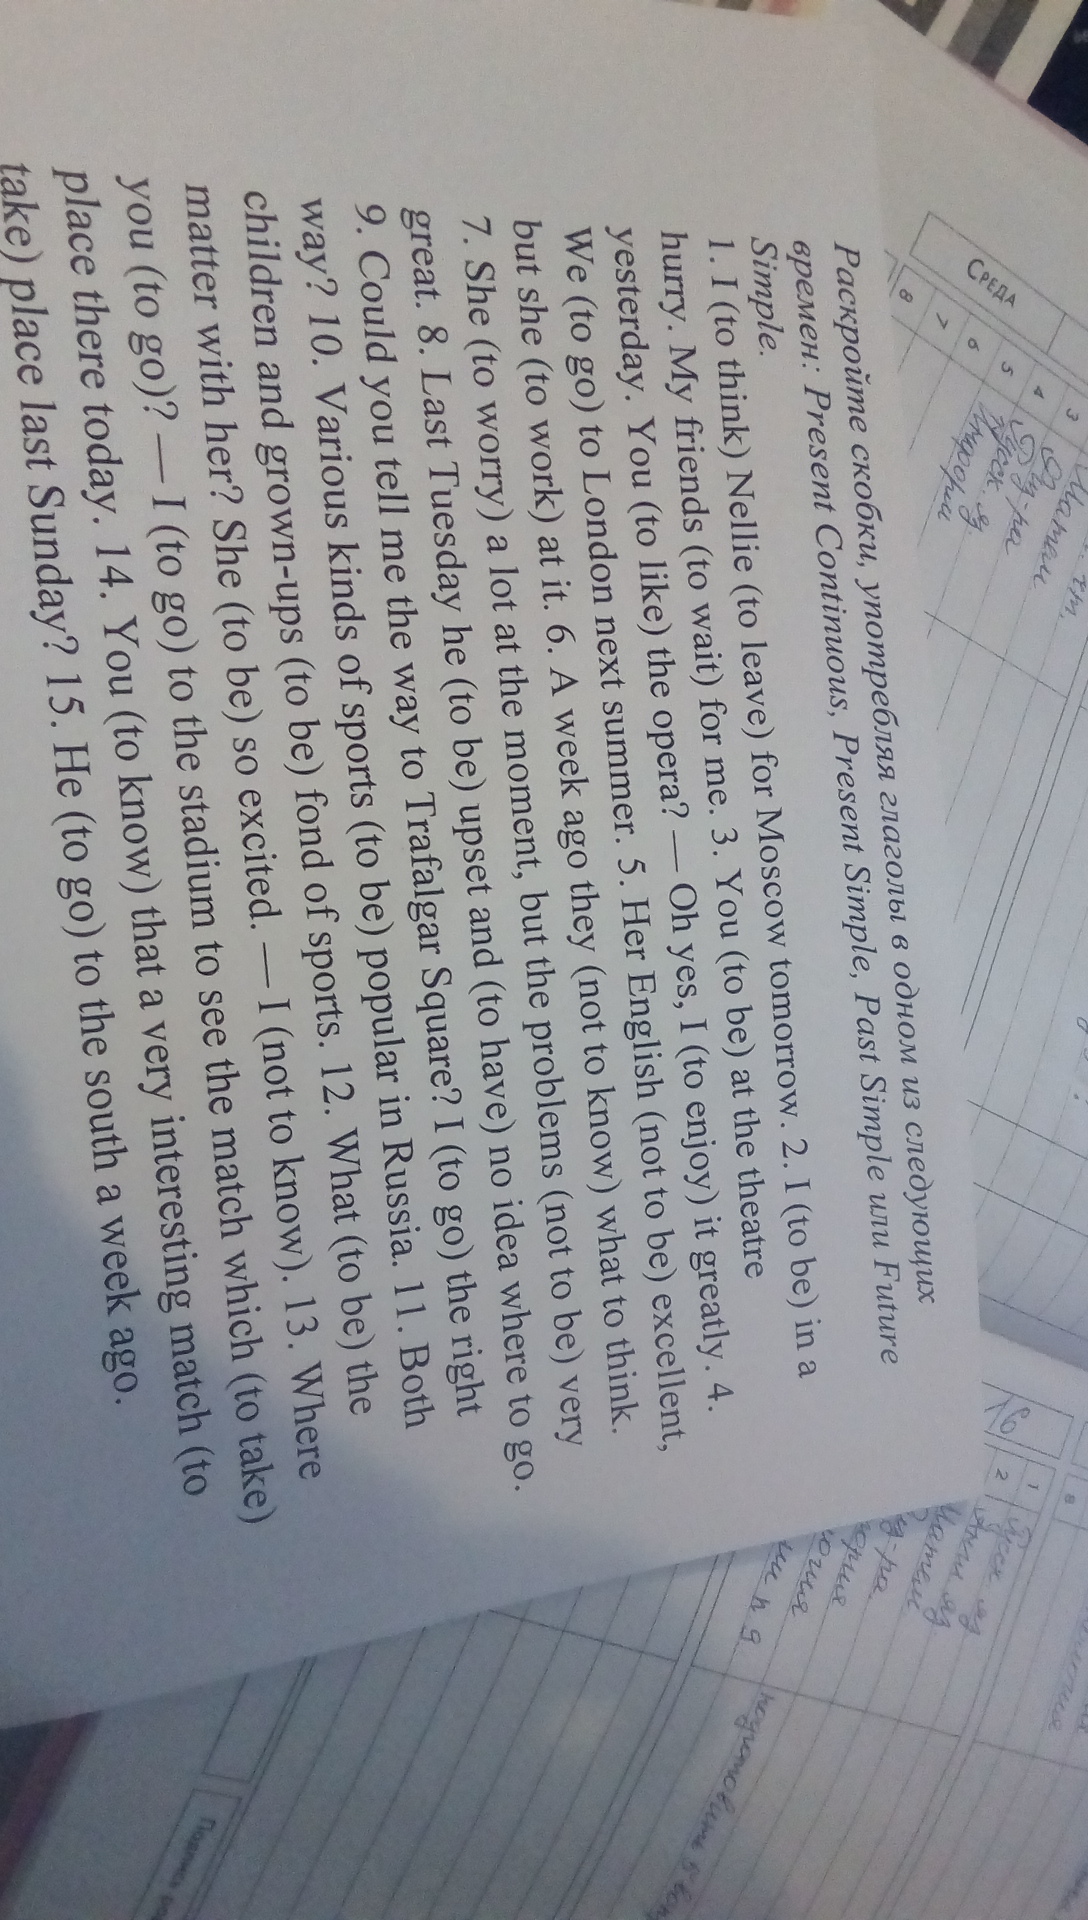 Раскройте скобки, употребляя глаголы в одном из следующих
времен: Present Continuous, Present Simple, Past Simple или Future
Simple.
1. I (to think) Nellie (to leave) for Moscow tomorrow. 2. I (to be) in a
hurry. My friends (to wait) for me. 3. You (to be) at the theatre
yesterday. You (to like) the opera? — Oh yes, I (to enjoy) it greatly. 4.
We (to go) to London next summer. 5. Her English (not to be) excellent,
but she (to work) at it. 6. A week ago they (not to know) what to think.
7. She (to worry) a lot at the moment, but the problems (not to be) very
great. 8. Last Tuesday he (to be) upset and (to have) no idea where to go.
9. Could you tell me the way to Trafalgar Square? I (to go) the right
way? 10. Various kinds of sports (to be) popular in Russia. 11. Both
children and grown-ups (to be) fond of sports. 12. What (to be) the
matter with her? She (to be) so excited. — I (not to know). 13. Where
you (to go)? — I (to go) to the stadium to see the match which (to take)
place there today. 14. You (to know) that a very interesting match (to
take) place last Sunday? 15. He (to go) to the south a week ago.
СРЕДА
3
4
5
6
7
8
16
1
2
8